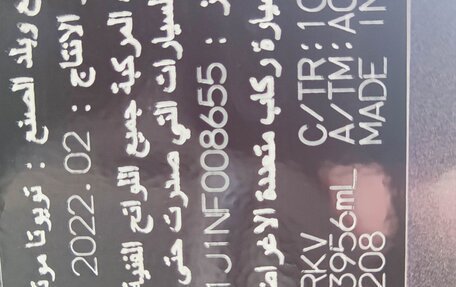 وبلد الصنع : تويوتا
الانتاج : 2022.02
المركبة جميع اللوائح الفنية
السيارات التي صدرت حتى
J1NF008655 :
سيارة ركاب متعددة الاغراض
RKV C/TR:10
3956mL A/TM:A0
208 MADE IN